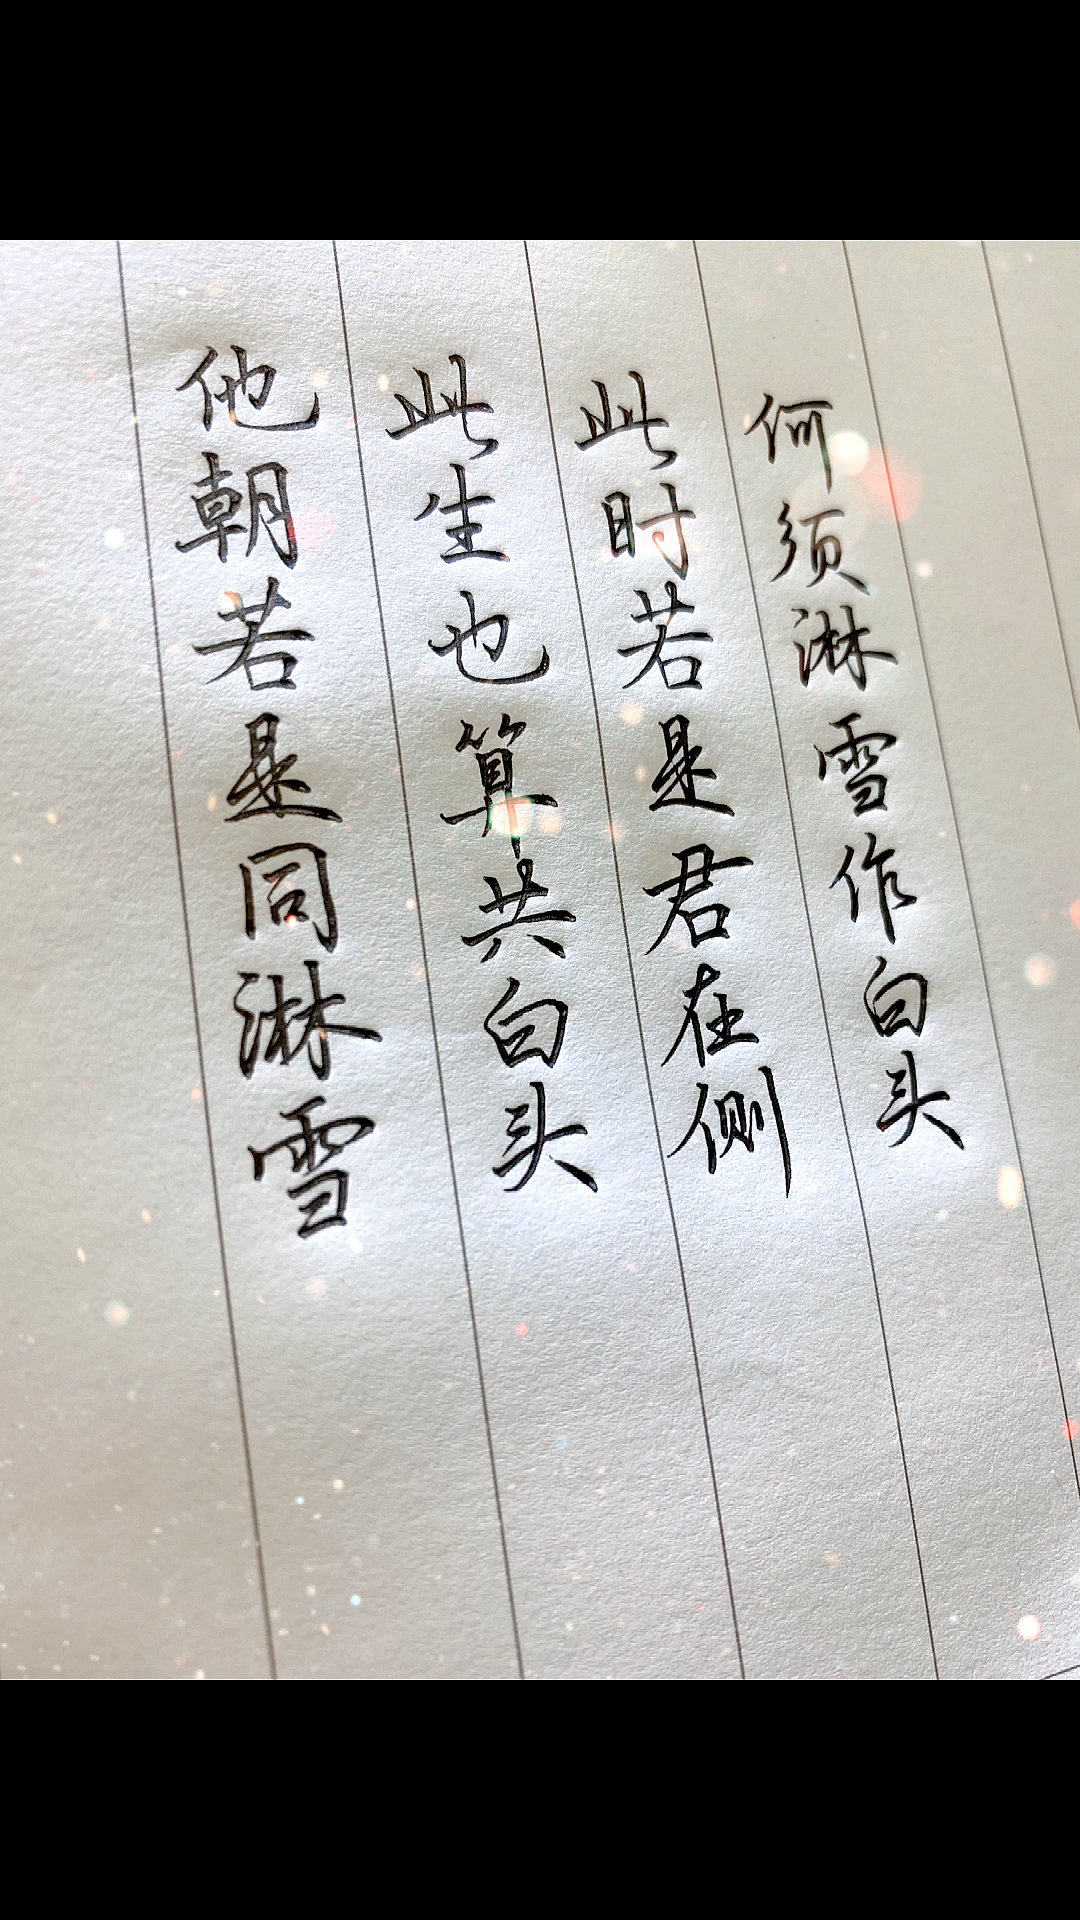 他朝若是同淋雪
此生也算共白头
此时若是君在侧
何须淋雪作白头